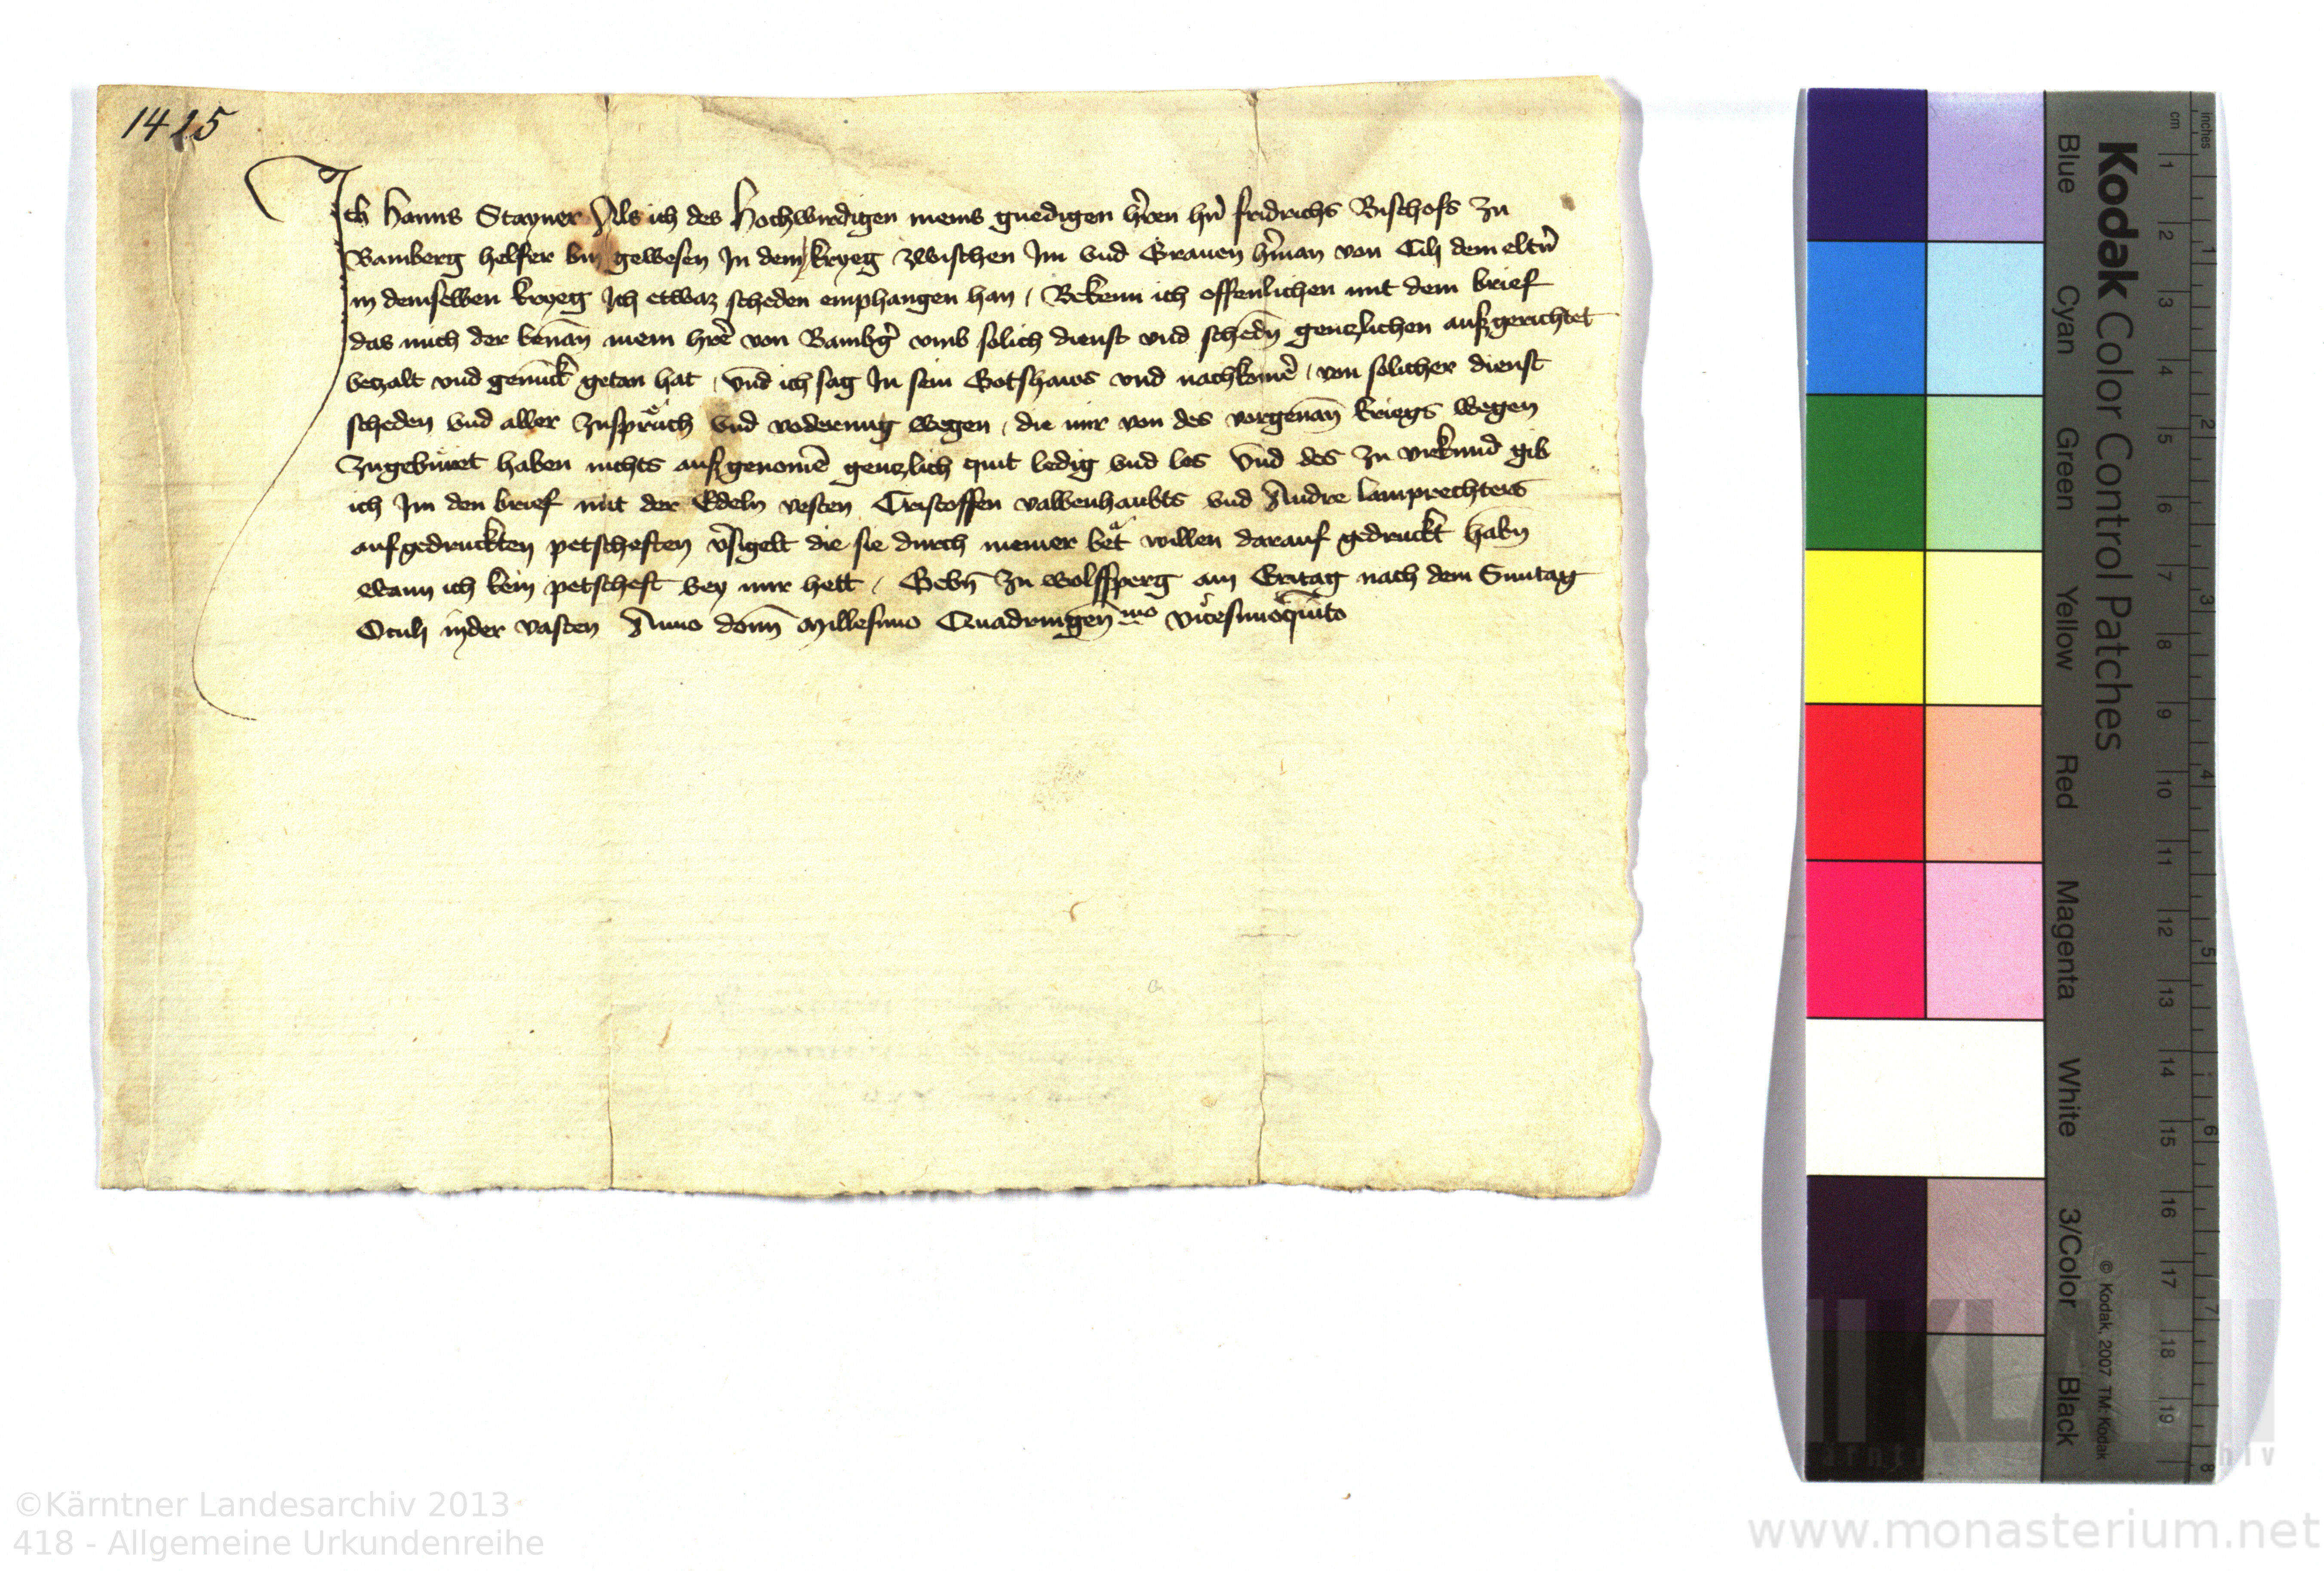 1425
Ich Hanns Stayner Als ich des Hochwirdigen meins gnedigen hr̄en hn̄ fridrichs Bischofs zu
Bamberg helfer bin gewesen In dem kryeg zwischen Im vnd Grauen hm̄an von Cili dem eltn̄
in demselben kryeg Ich etwaz scheden emphangen han / Bekenn ich offenlichen mit dem brief
das mich der benan̄ mein hrē von Bambḡ vmb solich dienst vnd schedn̄ genczlichen aufzgerichtet
beczalt vnd genuck̄ getan hat / vnd ich sag In sein Gotshaws vnd nachkomē / von solicher dienst
scheden vnd aller zuspruͤch vnd voderung wegen / die mir von des vorgenan̄ kriegs wegen
zugebüret haben nichts aufzgenomē genczlich quit ledig vnd los vnd des zu vrkund gib
ich Im den brief mit der Edeln vesten Cristoffen valbenhaubts vnd Andre lamprechters
aufgedruckten petscheften v̄sigelt die sie durch meiner bet willen darauf gedruckt habn̄
wann ich kein petscheft bey mir hett / Gebn̄ zu wolffsperg am Eritag nach dem Suntag
Oculi in der vasten Anno domī Millesimo Quadringen̄mo vicesimoquīto
Kodak Color Control Patches
Blue Cyan Green Yellow Red Magenta White 3/Color Black
© Kodak, 2007 TM: Kodak
cm 1 2 3 4 5 6 7 8 9 10 11 12 13 14 15 16 17 18 19
inches 1 2 3 4 5 6 7 8
©Kärntner Landesarchiv 2013
418 - Allgemeine Urkundenreihe
www.monasterium.net